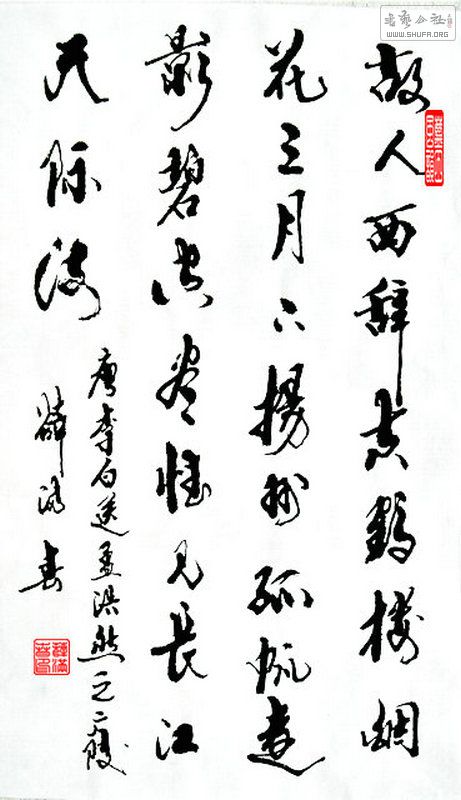 北艺公社
WWW.SHUFA.ORG
故人西辭黃鶴樓烟
花三月下揚州孤帆遠
影碧空盡惟見長江
天際流
唐李白送孟浩然之廣陵
薛滿春